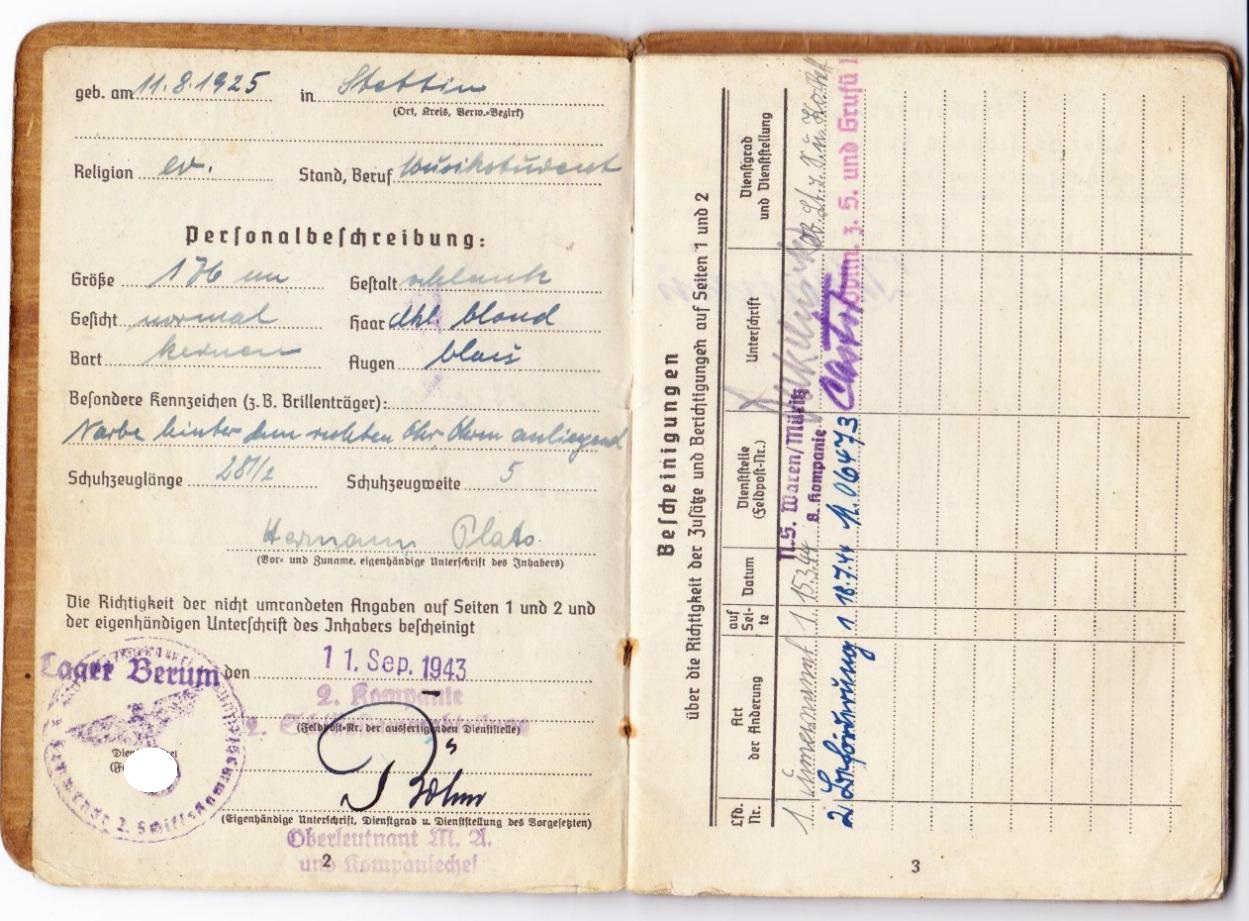 geb. am 11.8.1925 in Stettin
(Ort, Kreis, Verw.-Bezirk)
Religion ev. Stand, Beruf Musikstudent
Personalbeschreibung:
Größe 176 cm Gestalt schlank
Gesicht normal Haar dkl. blond
Bart keinen Augen blau
Besondere Kennzeichen (z.B. Brillenträger):
Narbe hinter dem rechten Ohr, Ohren anliegend
Schuhzeuglänge 28 1/2 Schuhzeugweite 5
Hermann Plato.
(Vor- und Zuname, eigenhändige Unterschrift des Inhabers)
Die Richtigkeit der nicht umrandeten Angaben auf Seiten 1 und 2 und
der eigenhändigen Unterschrift des Inhabers bescheinigt
Lager Berum den 11. Sep. 1943
2. Kompanie
2.
(Feldpost-Nr. der ausfertigenden Dienststelle)
(Eigenhändige Unterschrift, Dienstgrad u. Dienststellung des Vorgesetzten)
Oberleutnant M. A.
und Kompaniechef
2
Bescheinigungen
über die Richtigkeit der Zusätze und Berichtigungen auf Seiten 1 und 2
Lfd. Nr.
Art der Änderung
auf Seite
Datum
Dienststelle (Feldpost-Nr.)
Unterschrift
Dienstgrad und Dienststellung
N.S. Waren/Müritz
8. Kompanie
1. 1. 15.3.44
2. Beförderung 1 18.7.44 M 06473
z. S. und Grufü
3